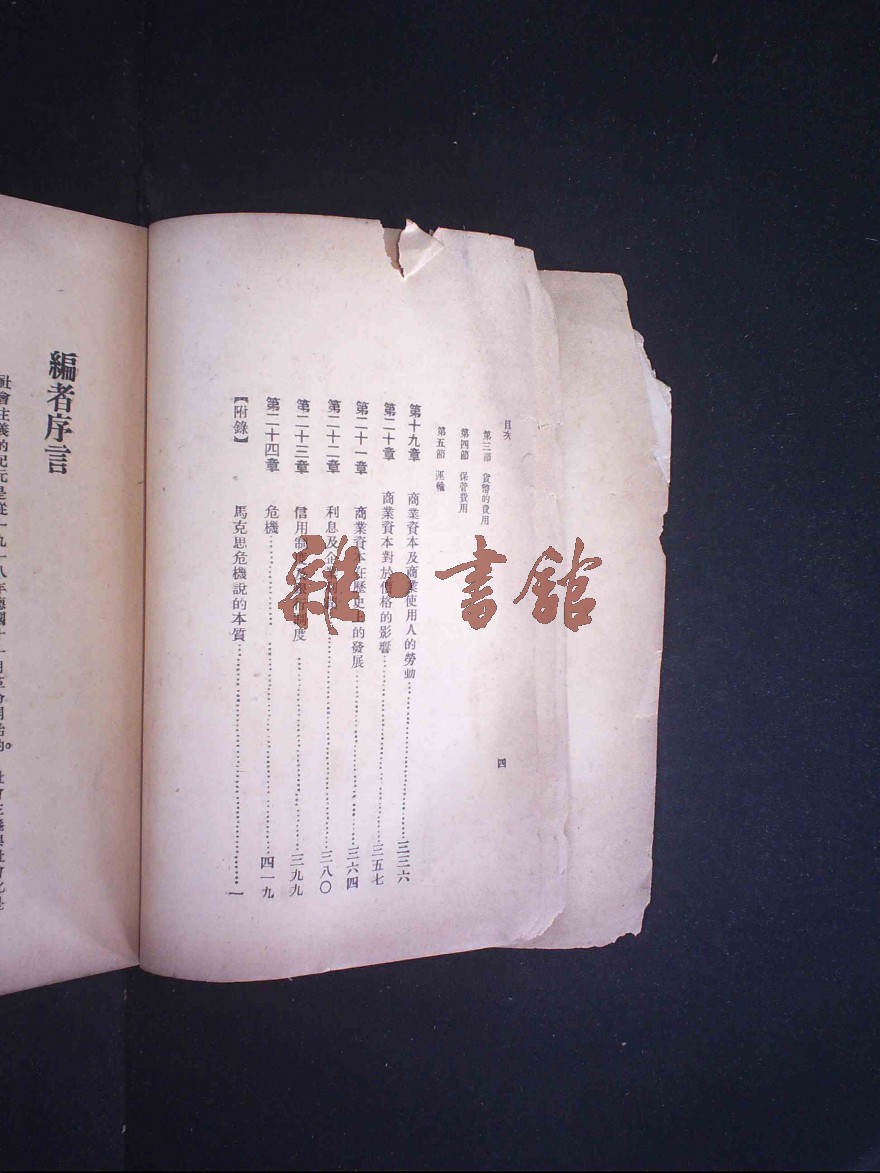 目次
四
第三節 貨幣的費用
第四節 保管費用
第五節 運輸
第十九章 商業資本及商業使用人的勞動 三三六
第二十章 商業資本對於價格的影響 三五七
第二十一章 商業資本在歷史上的發展 三六四
第二十二章 利息及企業 三八〇
第二十三章 信用制度及銀行制度 三九九
第二十四章 危機 四一九
【附錄】 馬克思危機說的本質 一
編者序言
社會主義的紀元是從一九一八年德國十一月革命開始的。社會主義與社會化是
雜·書館